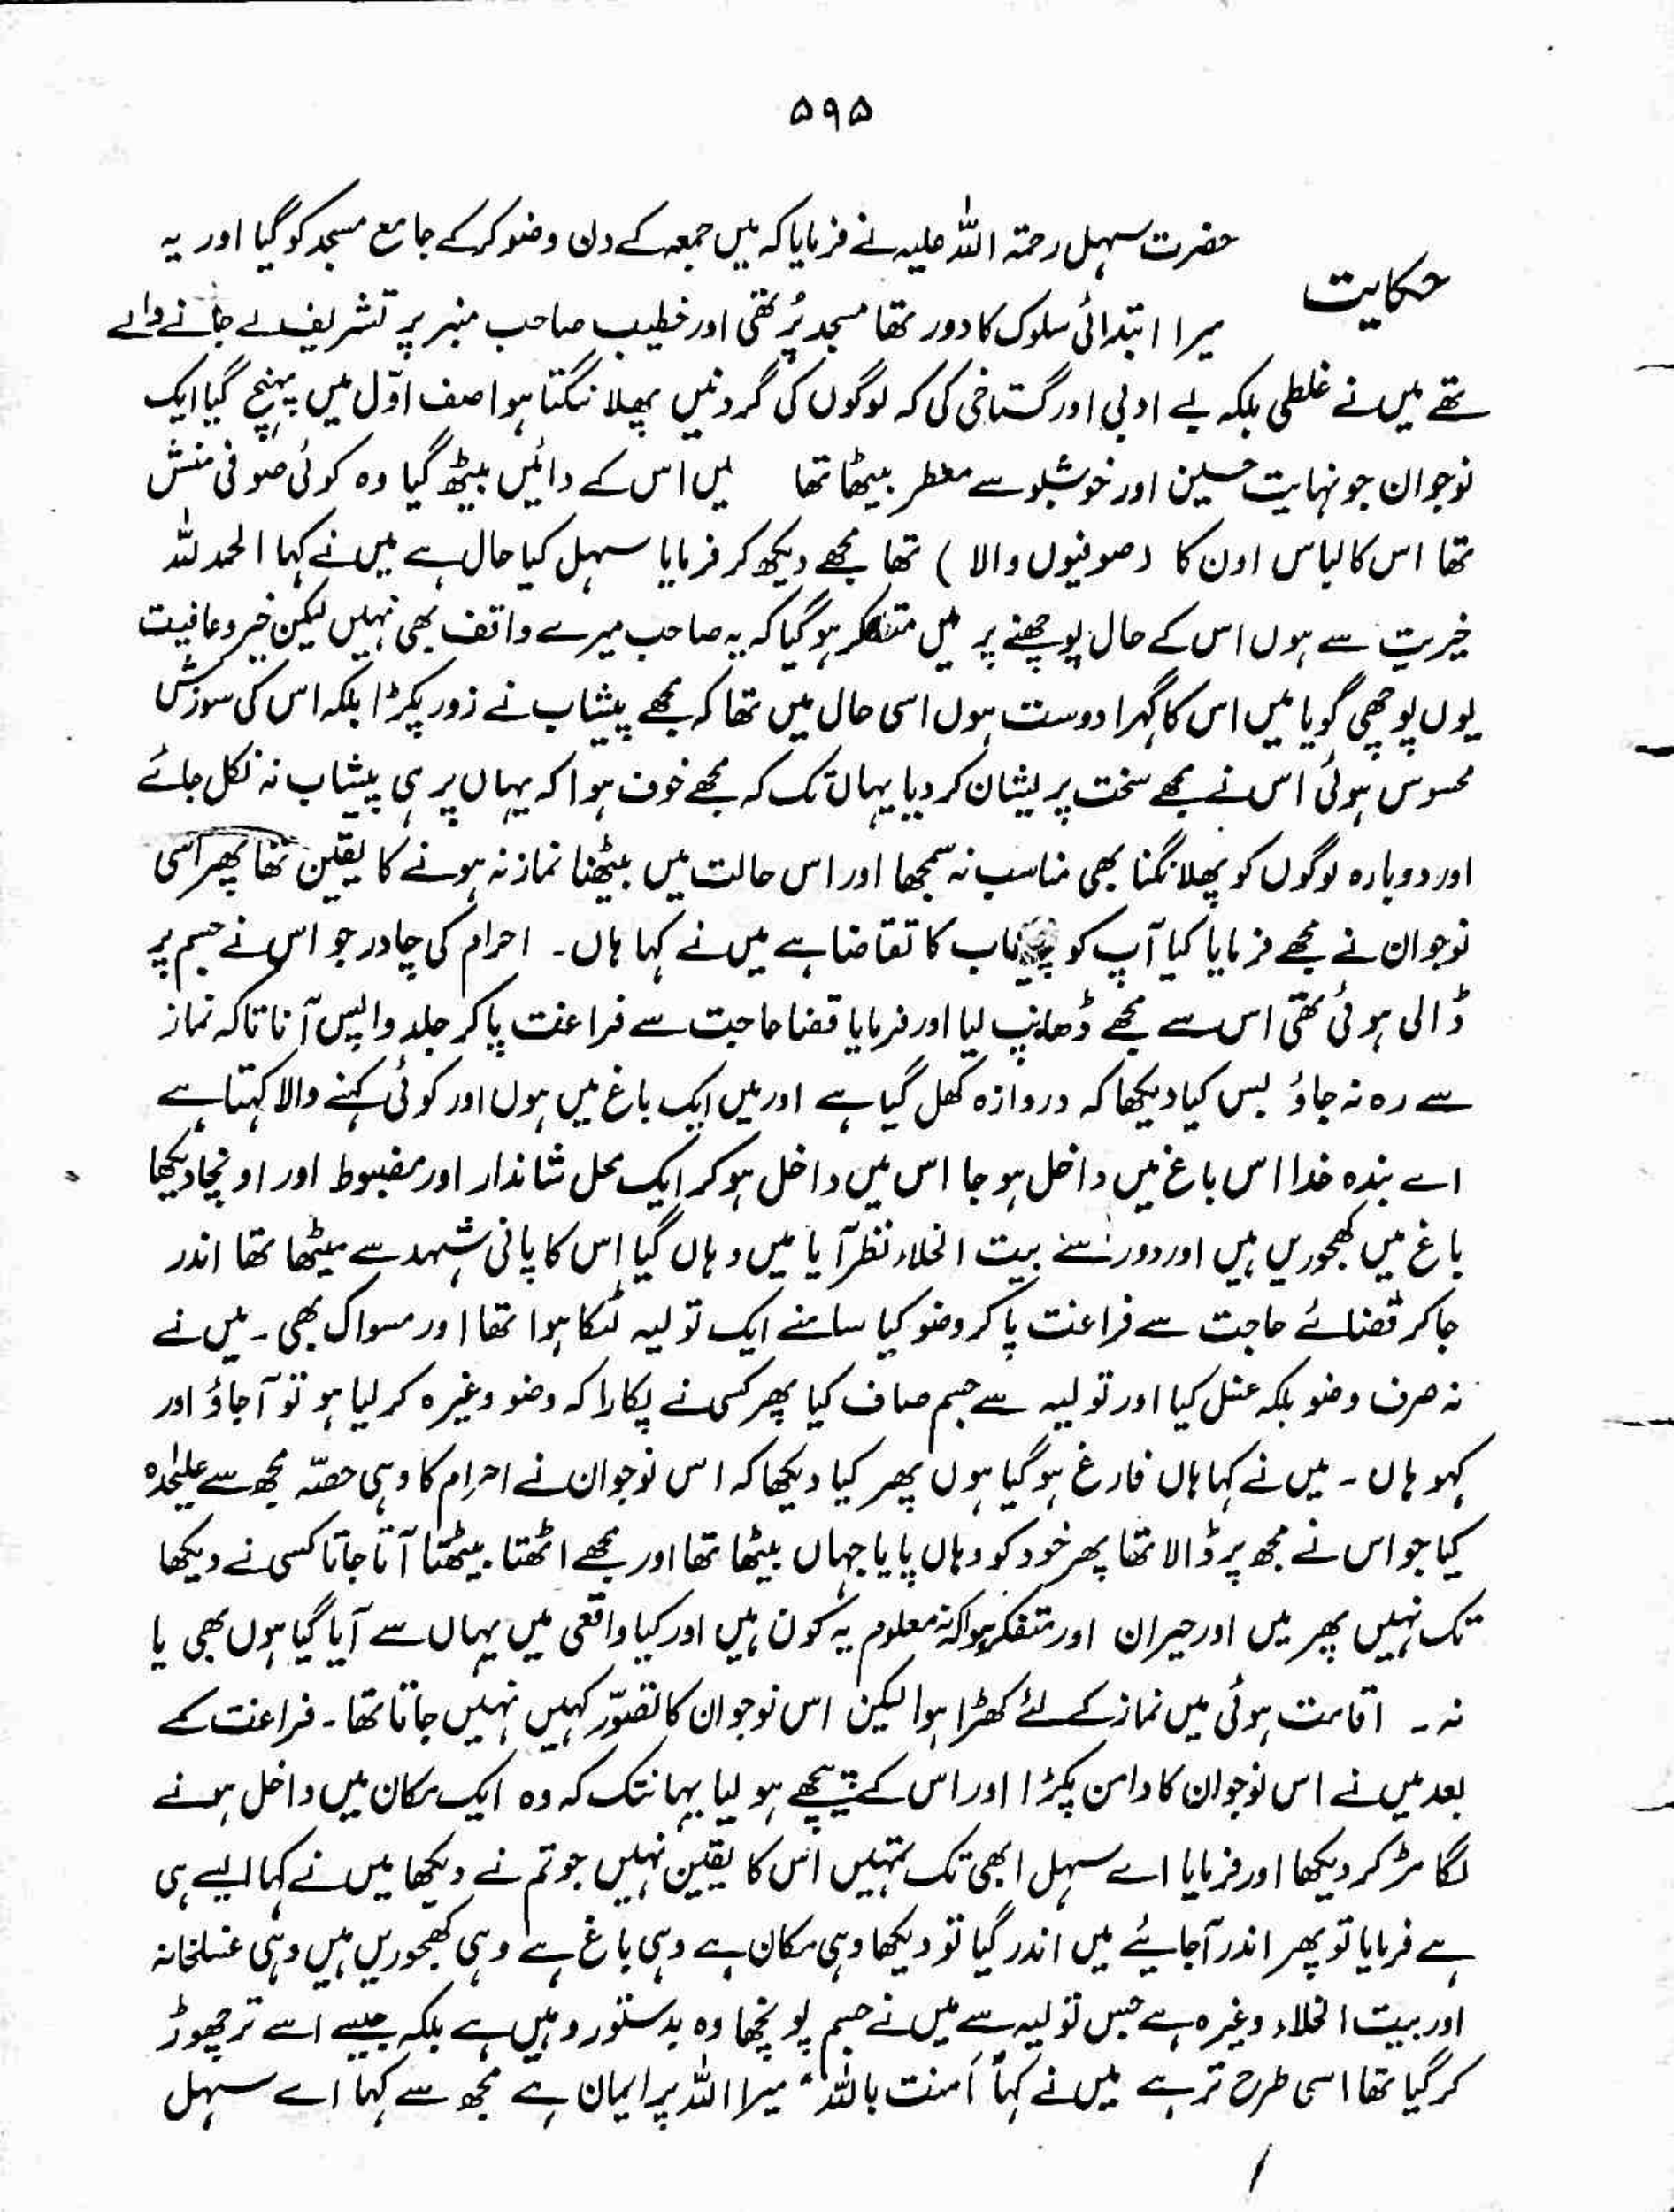 ۵۹۵
حضرت سہل رحمۃ اللہ علیہ نے فرمایا کہ میں جمعہ کے دن وضو کرکے جامع مسجد کو گیا اور یہ
حکایت
میرا ابتدائی سلوک کا دور تھا مسجد پُر تھی اور خطیب صاحب منبر پر تشریف لے جانے والے
تھے میں نے غلطی بلکہ بے ادبی اور گستاخی کی کہ لوگوں کی گردنیں پھلانگتا ہوا صف اوّل میں پہنچ گیا ایک
نوجوان جو نہایت حسین اور خوشبو سے معطر بیٹھا تھا میں اس کے دائیں بیٹھ گیا وہ کوئی صوفی منش
تھا اس کا لباس اون کا (صوفیوں والا) تھا مجھے دیکھ کر فرمایا سہل کیا حال ہے میں نے کہا الحمد للہ
خیریت سے ہوں اس کے حال پوچھنے پر میں متفکر ہو گیا کہ یہ صاحب میرے واقف بھی نہیں لیکن خیر و عافیت
یوں پوچھی گویا میں اس کا گہرا دوست ہوں اسی حال میں تھا کہ مجھے پیشاب نے زور پکڑا بلکہ اس کی سوزش
محسوس ہوئی اس نے مجھے سخت پریشان کر دیا یہاں تک کہ مجھے خوف ہوا کہ یہاں پر ہی پیشاب نہ نکل جائے
اور دوبارہ لوگوں کو پھلانگنا بھی مناسب نہ سمجھا اور اس حالت میں بیٹھنا نماز نہ ہونے کا یقین تھا پھر اسی
نوجوان نے مجھے فرمایا کیا آپ کو پیشاب کا تقاضا ہے میں نے کہا ہاں۔ احرام کی چادر جو اس نے جسم پر
ڈالی ہوئی تھی اس سے مجھے ڈھانپ لیا اور فرمایا قضا حاجت سے فراغت پا کر جلد واپس آنا تاکہ نماز
سے رہ نہ جاؤ بس کیا دیکھا کہ دروازہ کھل گیا ہے اور میں ایک باغ میں ہوں اور کوئی کہنے والا کہتا ہے
اے بندہ خدا اس باغ میں داخل ہو جا اس میں داخل ہو کر ایک محل شاندار اور مضبوط اور اونچا دیکھا
باغ میں کھجوریں ہیں اور دور سے بیت الخلاء نظر آیا میں وہاں گیا اس کا پانی شہد سے میٹھا تھا اندر
جا کر قضائے حاجت سے فراغت پا کر وضو کیا سامنے ایک تولیہ لٹکا ہوا تھا اور مسواک بھی۔ میں نے
نہ صرف وضو بلکہ غسل کیا اور تولیہ سے جسم صاف کیا پھر کسی نے پکارا کہ وضو وغیرہ کر لیا ہو تو آجاؤ اور
کہو ہاں۔ میں نے کہا ہاں فارغ ہو گیا ہوں پھر کیا دیکھا کہ اس نوجوان نے احرام کا وہی حصّہ مجھ سے علیحدہ
کیا جو اس نے مجھ پر ڈالا تھا پھر خود کو وہاں پایا جہاں بیٹھا تھا اور مجھے اٹھتا بیٹھتا آتا جاتا کسی نے دیکھا
تک نہیں پھر میں اور حیران اور متفکر ہوا کہ نہ معلوم یہ کون ہیں اور کیا واقعی میں یہاں سے آیا گیا ہوں بھی یا
نہ۔ اقامت ہوئی میں نماز کے لئے کھڑا ہوا لیکن اس نوجوان کا تصوّر کہیں نہیں جاتا تھا۔ فراغت کے
بعد میں نے اس نوجوان کا دامن پکڑا اور اس کے پیچھے ہو لیا یہانتک کہ وہ ایک مکان میں داخل ہونے
لگا مڑ کر دیکھا اور فرمایا اے سہل ابھی تک تمہیں اس کا یقین نہیں جو تم نے دیکھا میں نے کہا ایسے ہی
ہے فرمایا تو پھر اندر آجایئے میں اندر گیا تو دیکھا وہی مکان ہے وہی باغ ہے وہی کھجوریں ہیں وہی غسلخانہ
اور بیت الخلاء وغیرہ ہے جس تولیہ سے میں نے جسم پونچھا وہ بدستور وہیں ہے بلکہ جیسے اسے تر چھوڑ
کر گیا تھا اسی طرح تر ہے میں نے کہا "اٰمنت باللہ" میرا اللہ پر ایمان ہے مجھ سے کہا اے سہل